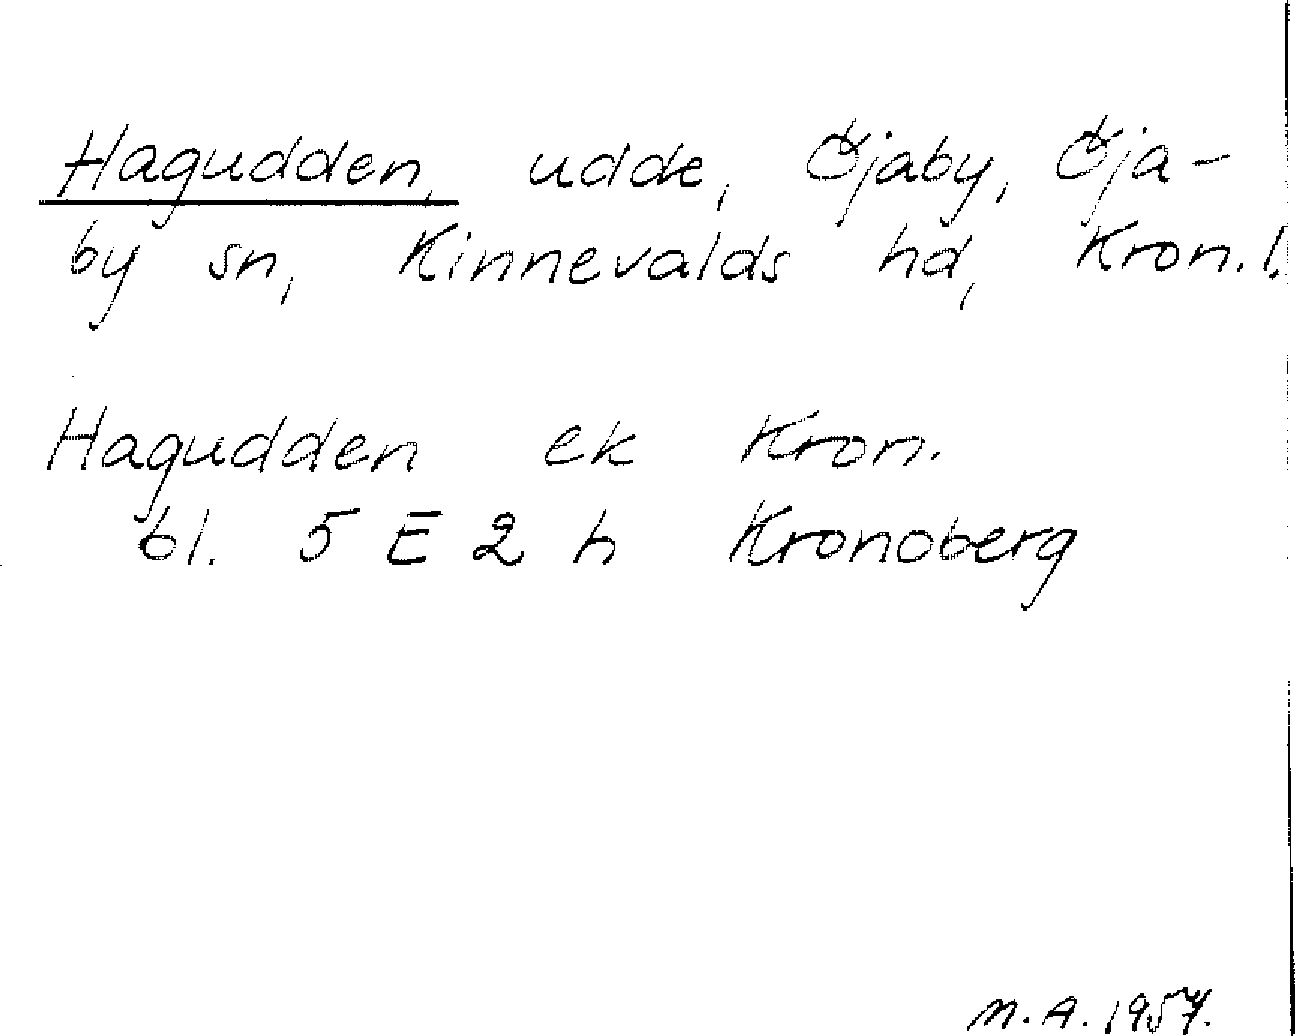 Hagudden, udde, Öjaby, Öja-
by sn, Kinnevalds hd, Kron.l.
Hagudden ek Kron.
bl. 5 E 2 h Kronoberg
M.A. 1957.